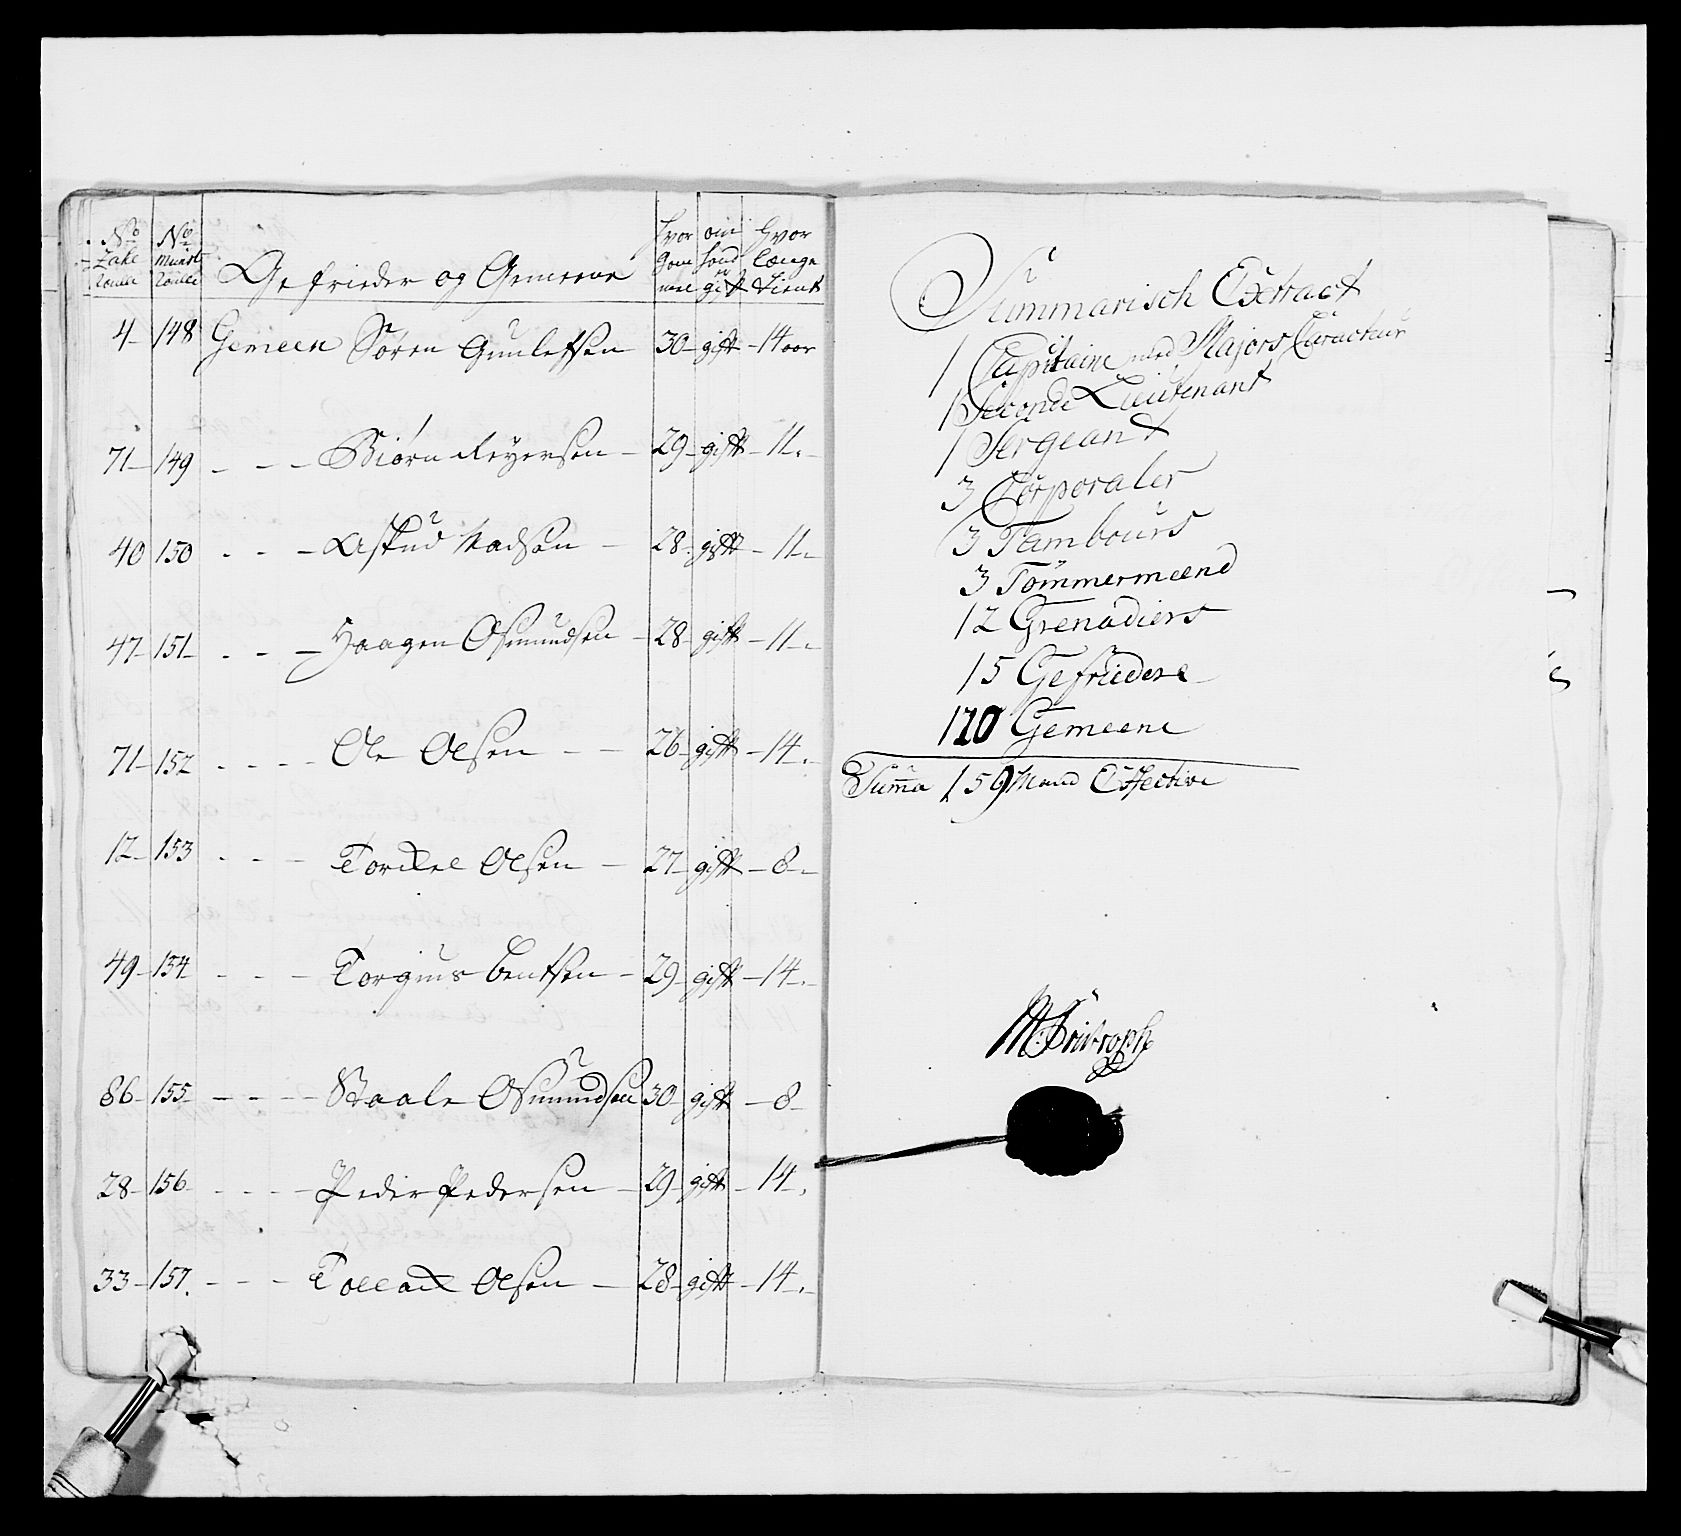 No No Hvor om Hvor
Zahl Munst Gam hand længe
Roulle Roulle Gefrieder og Gemeene mel er gift Tient
4 148 Gemeen Søren Gunlefsen 30 gift 14 aar
71 149 - - - Biørn Reyersen 29 gift 11
40 150 - - - Madsen 28 gift 11
47 151 - - - Haagen Osmundsen 28 gift 11
71 152 - - - - Ole Olsen 26 gift 14
12 153 - - - Torckel Olsen 27 gift 8
49 154 - - - Torgius Bentsen 29 gift 14
86 155 - - - - Staale Osmundsen 30 gift 8
28 156 - - - - Peder Pedersen 29 gift 14
33 157 - - - Tollack Olsen 28 gift 14
Summarisch Extract
1 Capitaine med Majors Caracteur
1 Seconde Lieutenant
1 Sergeant
3 Corporaler
3 Tambours
3 Tømmermænd
12 Grenadiers
15 Gefriedere
120 Gemeene
Summa 159 Mand Effective